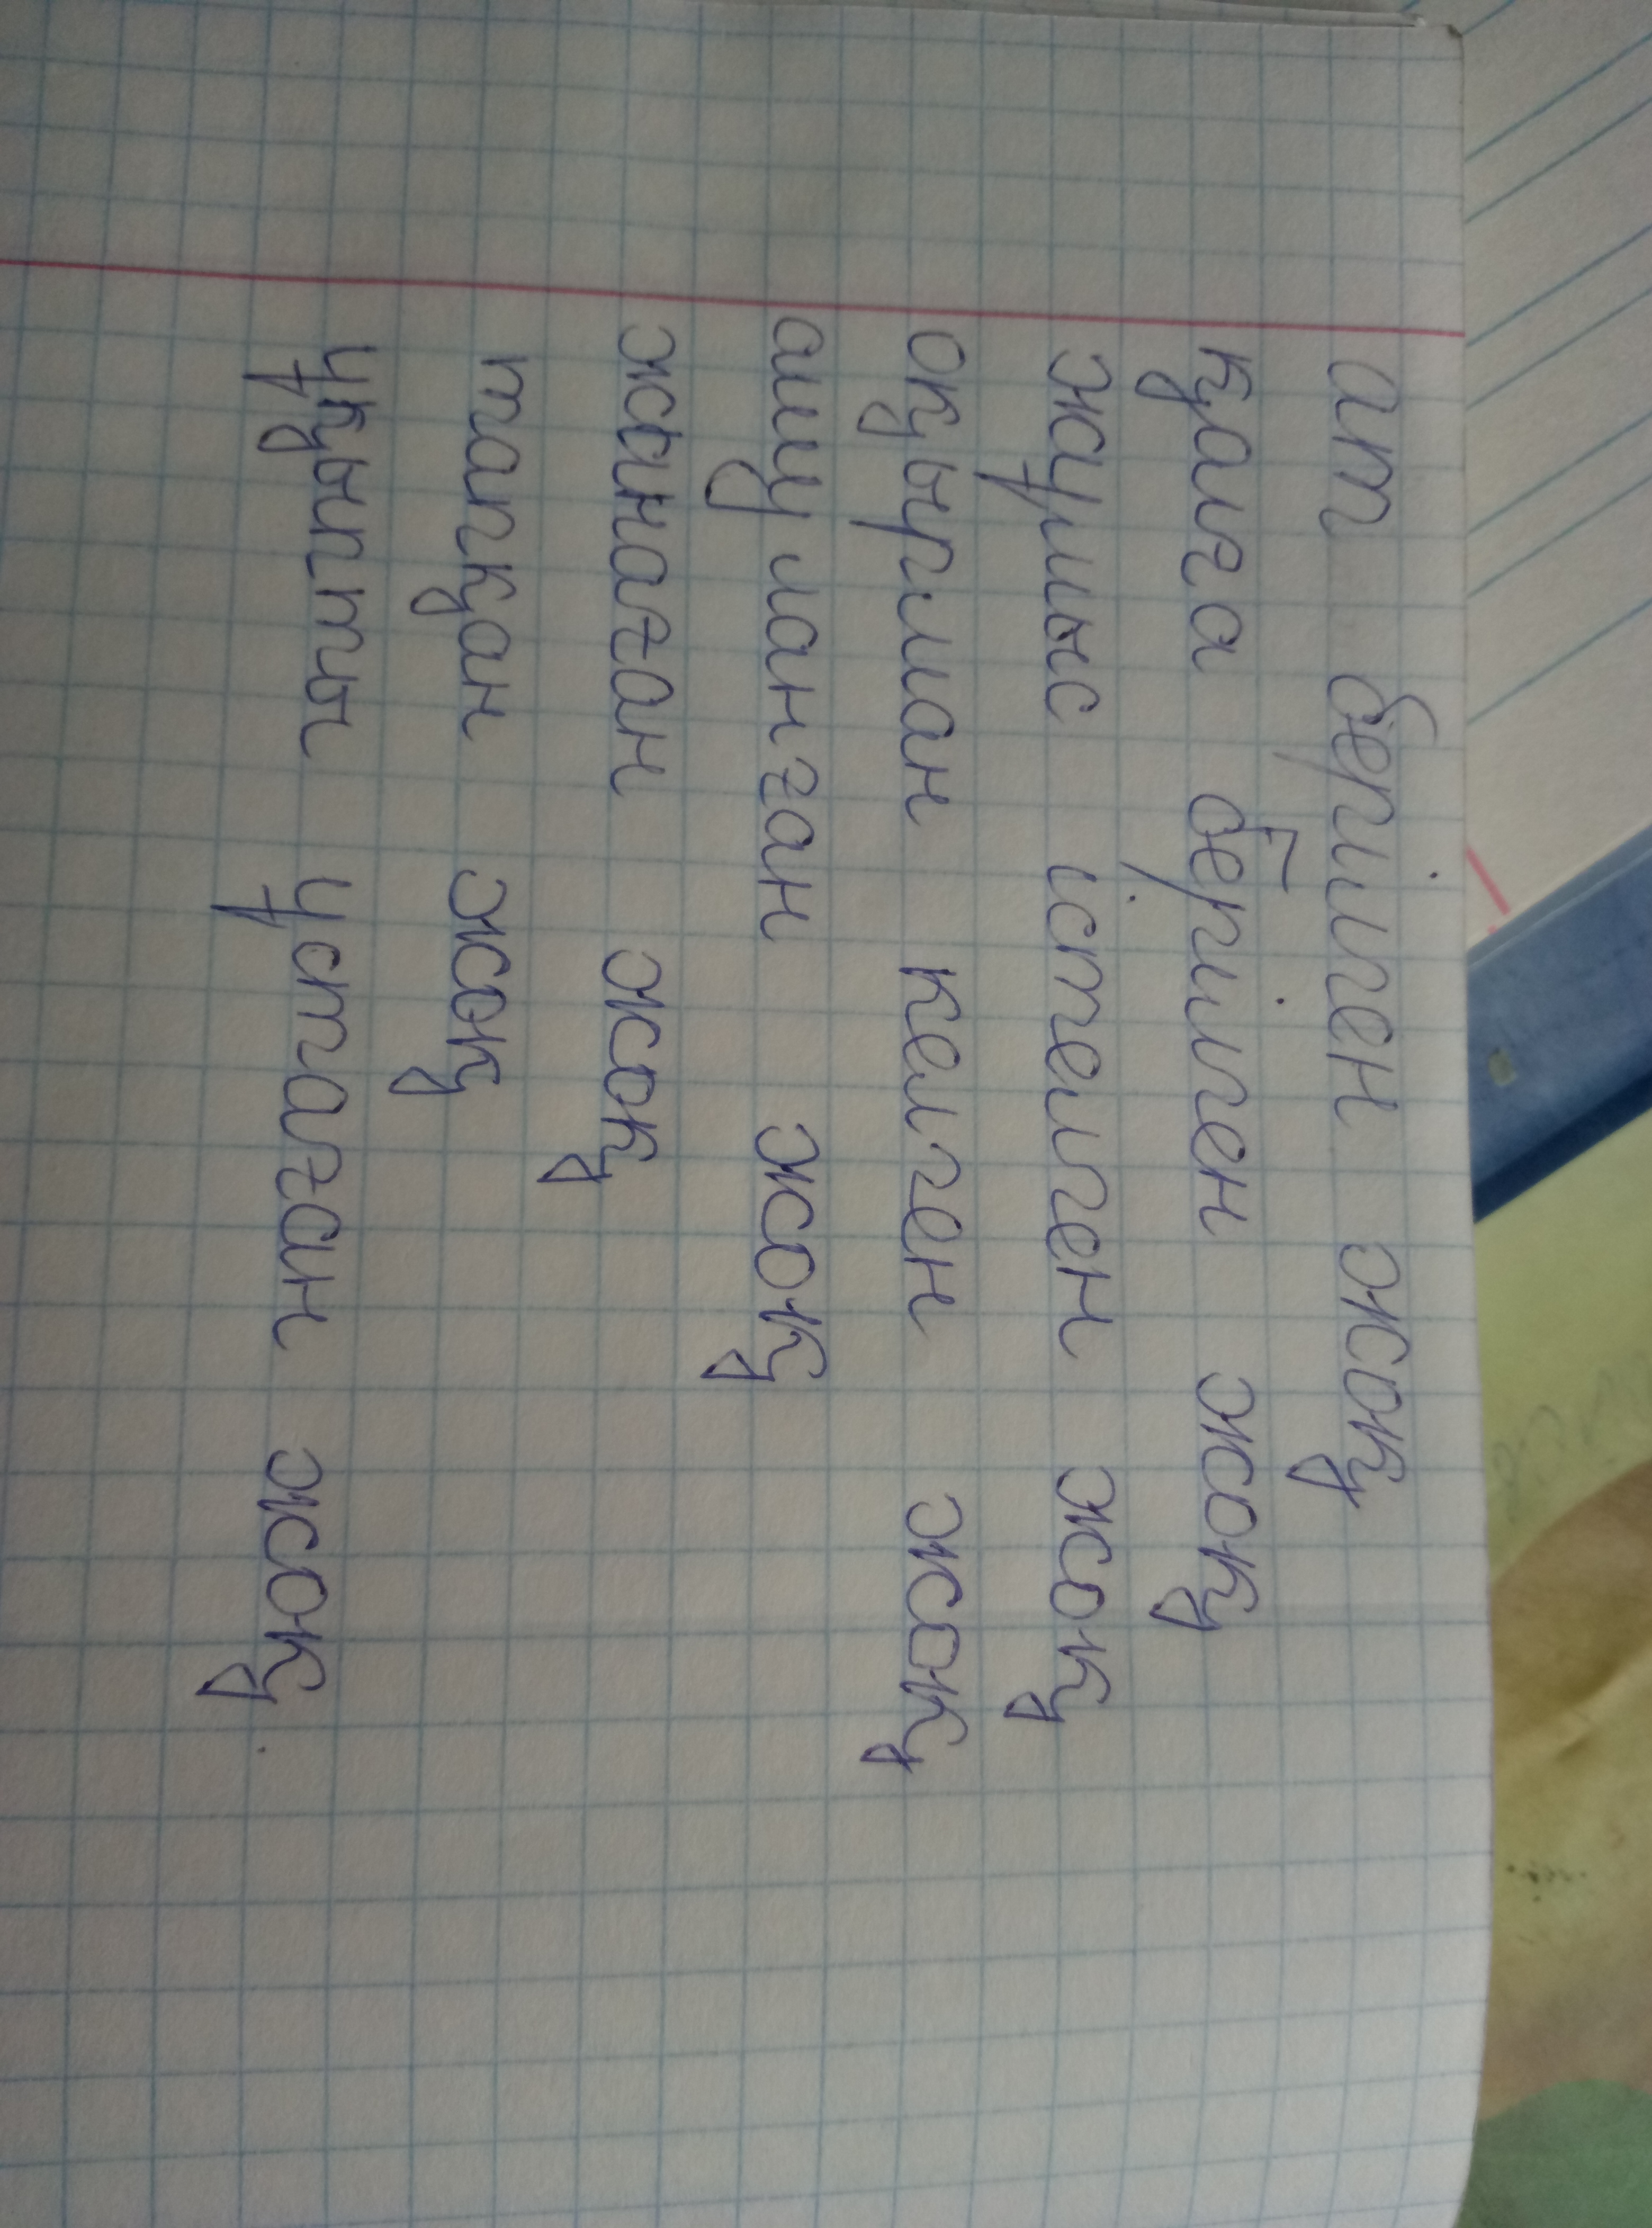 ат берілген жоқ
қалға берілген жоқ
жұмыс істелген жоқ
оқырман келген жоқ
ашуланған жоқ
жинаған жоқ
тапқан жоқ
ұқыпты ұстаған жоқ